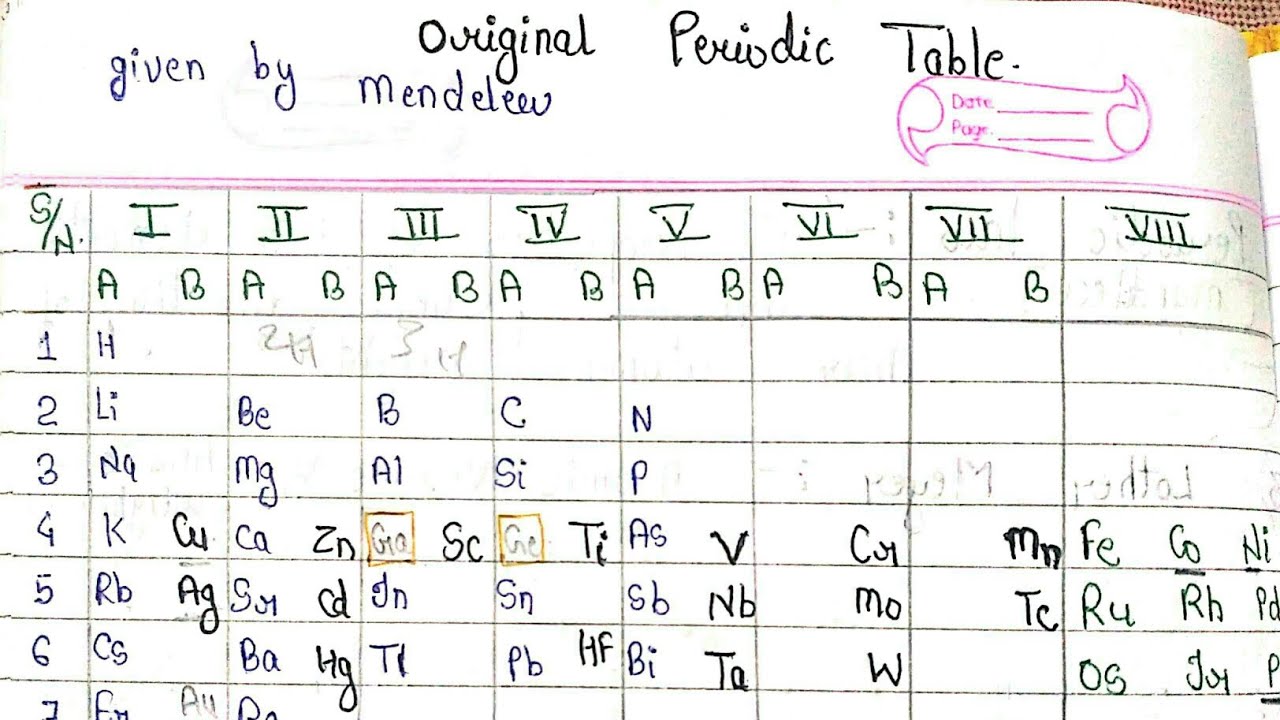 Original Periodic Table.
given by Mendeleev
Date
Page.
S/N. I II III IV V VI VII VIII
A B A B A B A B A B A B A B
1 H 2H 3H
2 Li Be B C N
3 Na Mg Al Si P
4 K Cu Ca Zn Ga Sc Ge Ti As V Cr Mn Fe Co Ni
5 Rb Ag Sr Cd In Sn Sb Nb Mo Tc Ru Rh Pd
6 Cs Ba Hg Tl Pb HF Bi Ta W Os Ir P
7 Fr Au Ra